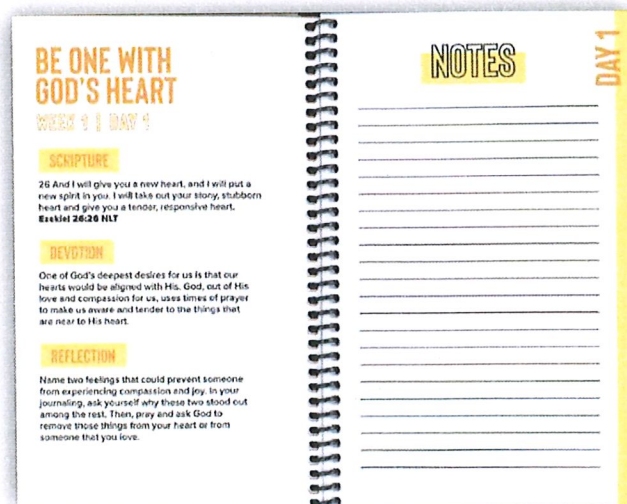 BE ONE WITH
GOD'S HEART
WEEK 1 | DAY 1
SCRIPTURE
26 And I will give you a new heart, and I will put a
new spirit in you. I will take out your stony, stubborn
heart and give you a tender, responsive heart.
Ezekiel 26:26 NLT
DEVOTION
One of God's deepest desires for us is that our
hearts would be aligned with His. God, out of His
love and compassion for us, uses times of prayer
to make us aware and tender to the things that
are near to His heart.
REFLECTION
Name two feelings that could prevent someone
from experiencing compassion and joy. In your
journaling, ask yourself why these two stood out
among the rest. Then, pray and ask God to
remove those things from your heart or from
someone that you love.
NOTES
DAY 1